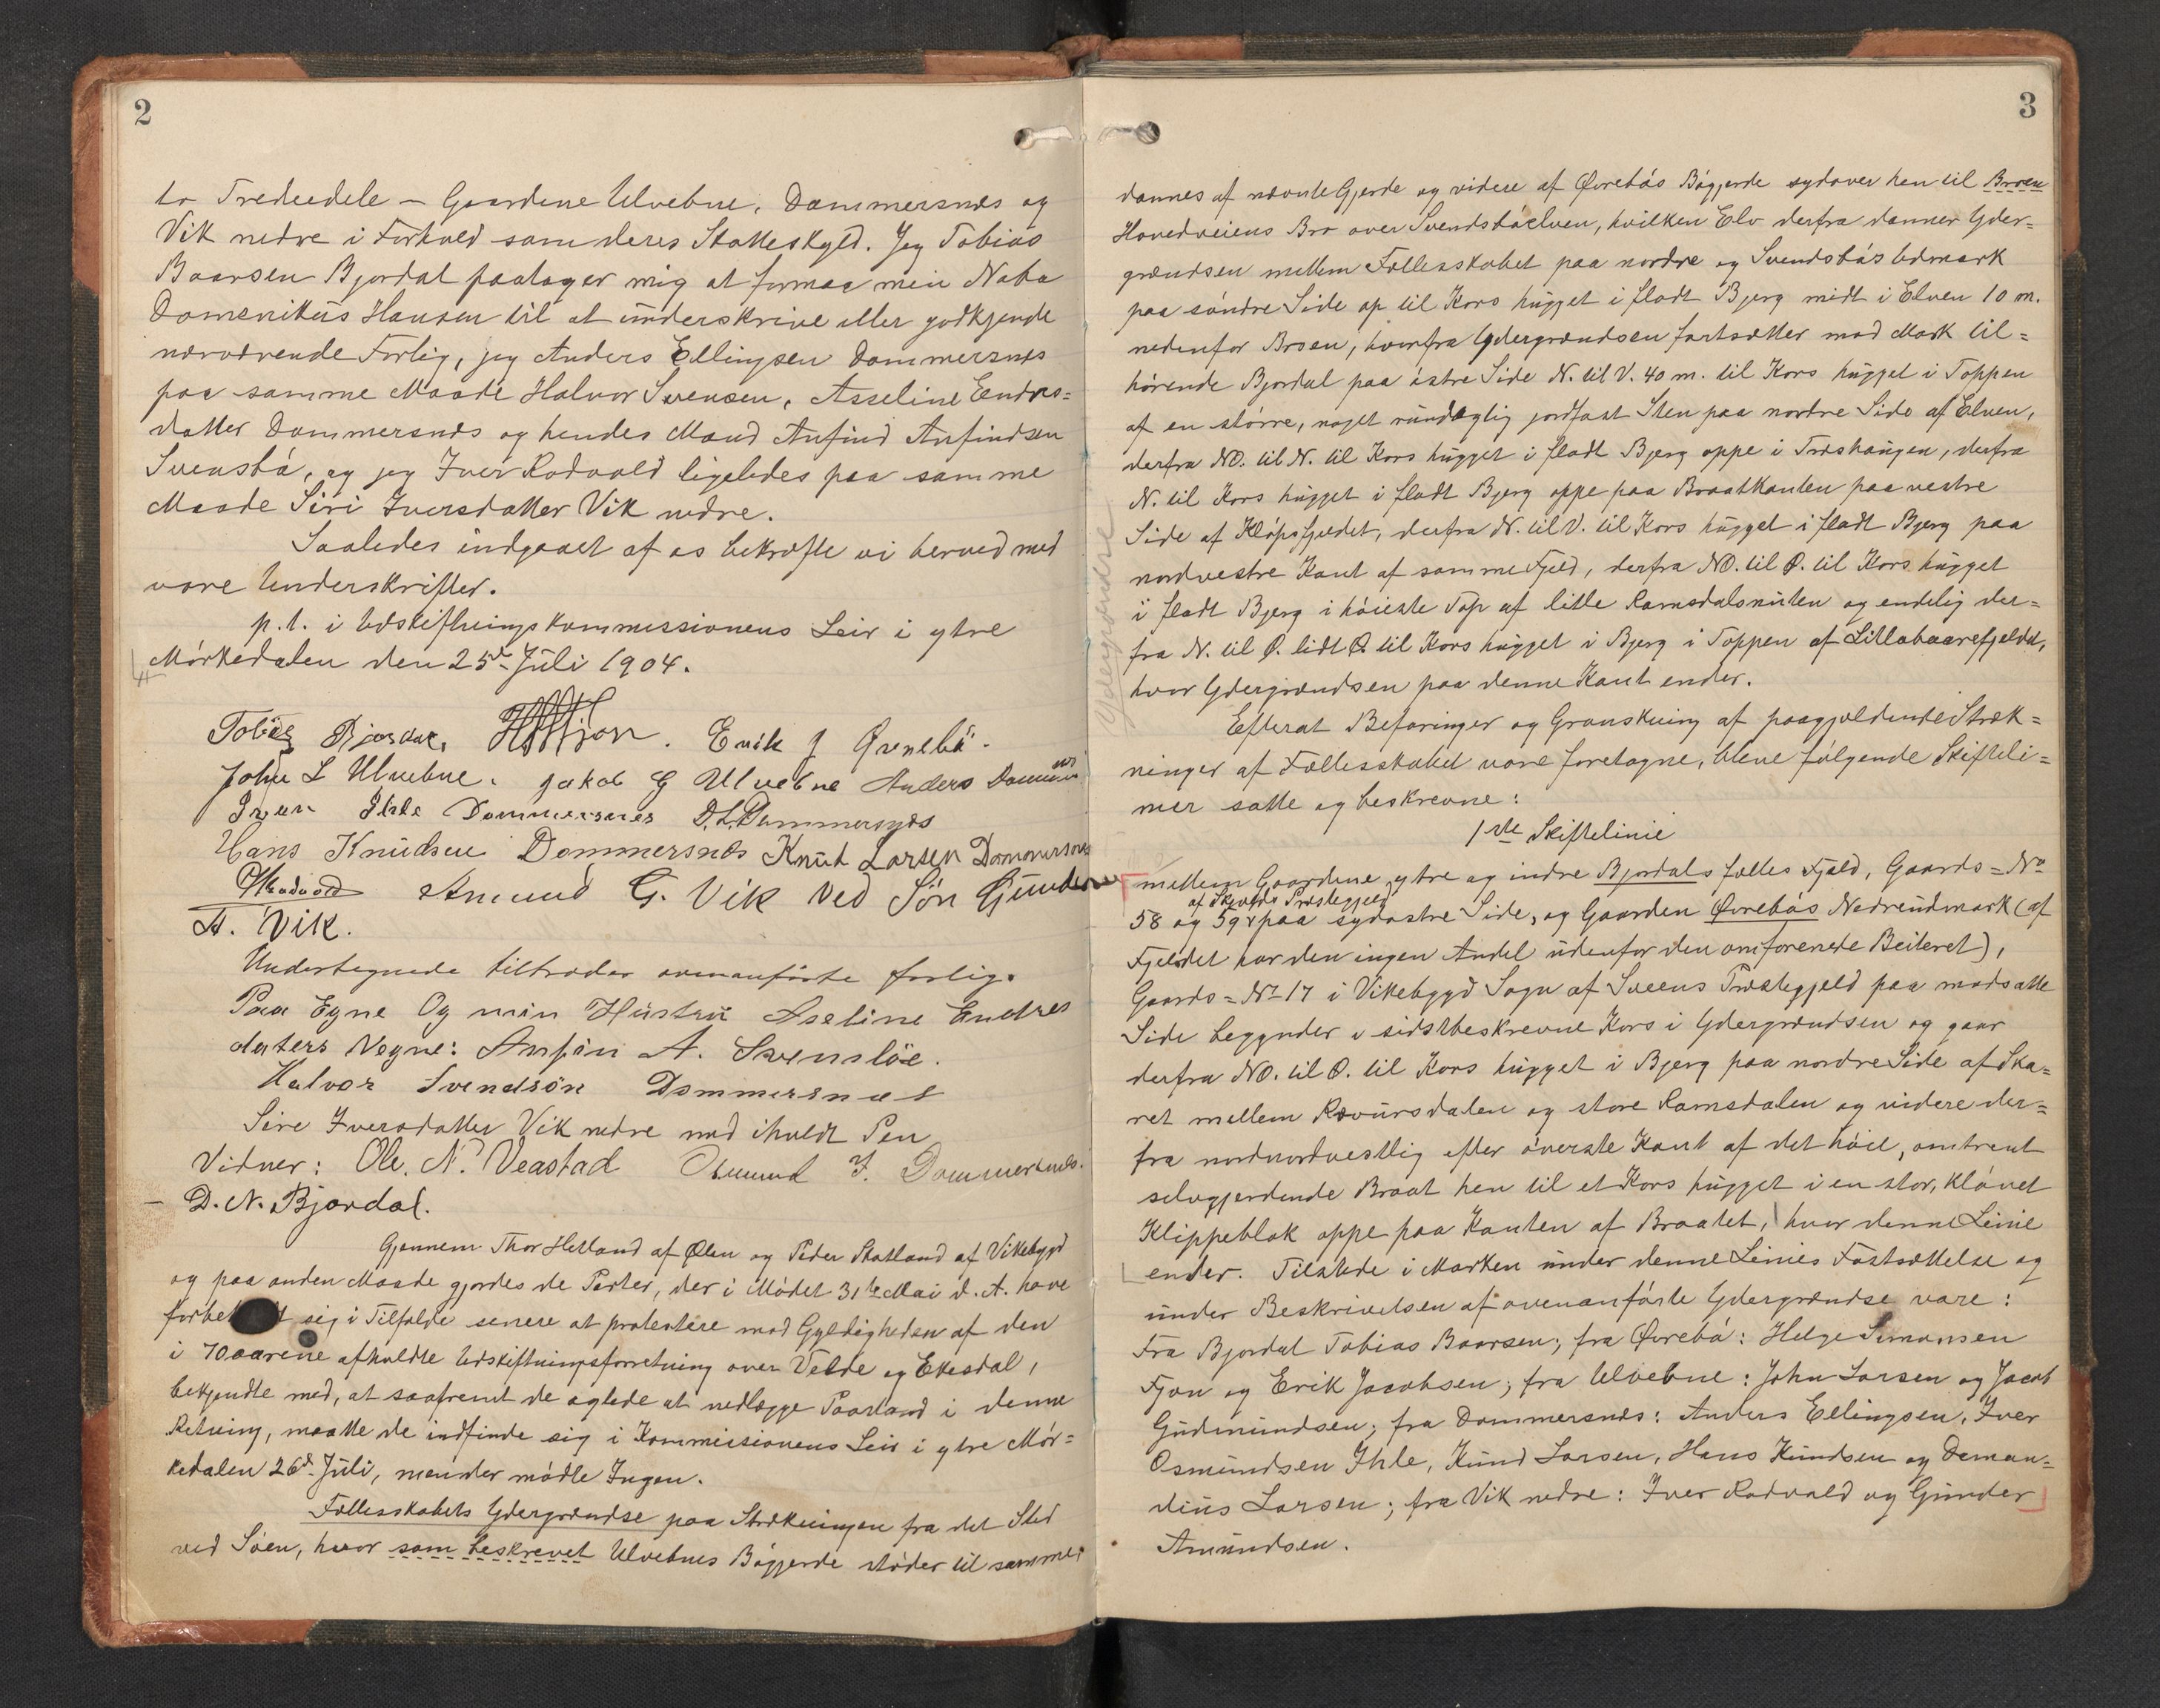 2
to Trediedele – Gaardene Ulvebne, Dommersnes og
Vik nedre i Forhold som deres Skatteskyld. Jeg Tobias
Baarsen Bjordal paatager mig at formaa min Nabo
Domenikus Hansen til at underskrive eller godkjende
nærværende Forlig, jeg Anders Ellingsen Dommersnes
paa samme Maade Halvor Svensen, Asseline Endres=
datter Dommersnes og hendes Mand Anfind Anfindsen
Svensbø, og jeg Iver Rødvold ligeledes paa samme
Maade Siri Iversdatter Vik nedre.
Saaledes indgaaet af os bekræfte vi herved med
vore Underskrifter.
p.t. i Udskiftningskommissionens Leir i ytre
Mørkedalen den 25de Juli 1904.
Tobias Bjordal, H Fjon. Erik J Øvrebø.
John L Ulvebne. Jakob G Ulvebne Anders Dommersnes
Ivar Ihle Dommersnes D.L. Dommersnes
Hans Knudsen Dommersnes Knut Larsen Dommersnes
Amund G. Vik ved Søn Gunder
A. Vik.
Undertegnede tiltræder ovenanførte forlig.
Paa Egne Og min Hustru Aseline Endres
daters Vegne: Anfin A. Svensbøe.
Halvor Svendsøn Dommersnæs
Sire Iversdatter Vik nedre med ihøldt Pen
Vidner: Ole. N. Veastad Osmund I. Dommersnes.
D. N. Bjordal.
Gjennem Thor Hetland af Ølen og Peder Skatland af Vikebygd
og paa anden Maade gjordes de Parter, der i Mødet 31te Mai d. A. have
forbet sig i Tilfælde senere at protestere mod Gyldigheden af den
i 70 aarene afholdte Udskiftningsforretning over Velde og Ekesdal,
bekjendte med, at saafremt de agtede at nedlægge Paastand i denne
Retning, maatte de indfinde sig i Kommissionens Leir i ytre Mør=
kedalen 26de Juli, men der mødte Ingen.
Fællesskabets Ydergrændse paa Strækningen fra det Sted
ved Søen, hvor som beskrevet Ulvebnes Bøgjerde støder til samme,
3
dannes af nævnte Gjerde og videre af Øvrebøs Bøgjerde sydover hen til Broen
Hovedveiens Bro over Svendsbøelven, hvilken Elv derfra danner Yder=
grændsen mellem Fællesskabet paa nordre og Svendsbøs Udmark
paa søndre Side op til Kors hugget i fladt Bjerg midt i Elven 10 m.
nedenfor Broen, hvorfra Ydergrændsen fortsætter mod Mark til=
hørende Bjordal paa østre Side N. til V. 40 m. til Kors hugget i Toppen
af en større, noget rundagtig jordfast Sten paa nordre Side af Elven,
derfra NO. til N. til Kors hugget i fladt Bjerg oppe i Træshaugen, derfra
N. til Kors hugget i fladt Bjerg oppe paa Braatkanten paa vestre
Side af Kløpsfjeldet, derfra N. til V. til Kors hugget i fladt Bjerg paa
nordvestre Kant af samme Fjeld, derfra NO. til O. til Kors hugget
i fladt Bjerg i høieste Top af litle Ramsdalsnuten og endelig der=
fra N. til O. lidt O. til Kors hugget i Bjerg i Toppen af Litlabaarefjeldet,
hvor Ydergrændsen paa denne Kant ender.
Ydergrændse
Efterat Befaringer og Granskning af paagjældende Stræk=
ninger af Fællesskabet vare foretagne, bleve følgende Skifteli=
nier satte og beskrevne:
1ste Skiftelinie
mellem Gaardene ytre og indre Bjordals fælles Fjeld, Gaards=No
af Skjolds Præstegjeld
58 og 59 paa sydøstre Side, og Gaarden Øvrebøs Nedreudmark (af
Fjeldet har den ingen Andel udenfor den omforenede Beiteret),
Gaards=No 17 i Vikebygd Sogn af Sveens Præstegjeld paa modsatte
Side begynder i sidstbeskrevne Kors i Ydergrændsen og gaar
derfra NO. til O. til Kors hugget i Bjerg paa nordre Side af Ska=
ret mellem Rævursdalen og store Ramsdalen og videre der=
fra nordnordvestlig efter øverste Kant af det høie, omtrent
selvgjerdende Braat hen til et Kors hugget i en stor, kløvet
Klippeblok oppe paa Kanten af Braatet, hvor denne Linie
ender. Tilstede i Marken under denne Linies Fastsættelse og
under Beskrivelsen af ovenanførte Ydergrændse vare:
Fra Bjordal Tobias Baarsen; fra Øvrebø: Helge Simonsen
Fjon og Erik Jacobsen; fra Ulvebne: John Larsen og Jacob
Gudmundsen; fra Dommersnes: Anders Ellingsen, Iver
Osmundsen Ihle, Knud Larsen, Hans Knudsen og Deman=
dius Larsen; fra Vik nedre: Iver Rødvald og Gunder
Amundsen.